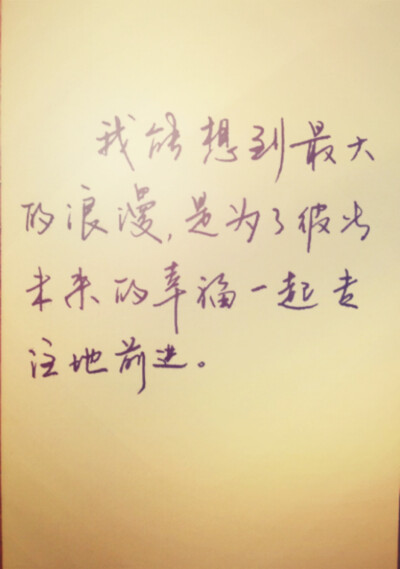 我能想到最大
的浪漫,是为了彼此
未来的幸福一起专
注地前进。